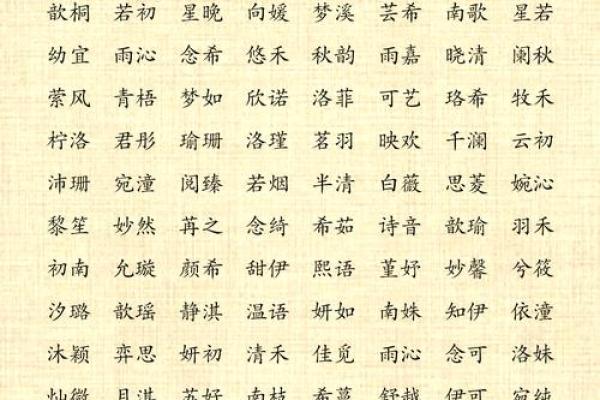 歆桐 若初 星晚 向媛 梦溪 芸希 南歌 星若
幼宜 雨沁 念希 悠禾 秋韵 雨嘉 晓清 阑秋
萦风 青梧 梦如 欣诺 洛菲 可艺 珞希 牧禾
柠洛 君彤 瑜珊 洛瑾 茗羽 映欢 千澜 云初
沛珊 宛潼 阅臻 若烟 半清 白薇 思菱 婉沁
黎笙 妙然 苒之 念绮 希茹 诗音 歆瑜 羽禾
初南 允璇 颜希 甜伊 熙语 堇妤 妙馨 兮筱
汐璐 歆瑶 静淇 温语 妍如 南姝 知伊 依潼
沐颖 弈思 妍初 清禾 佳觅 雨沁 念可 洛妹
灿微 月淇 苏妤 南枝 希蔓 舒越 伊可 宛纯